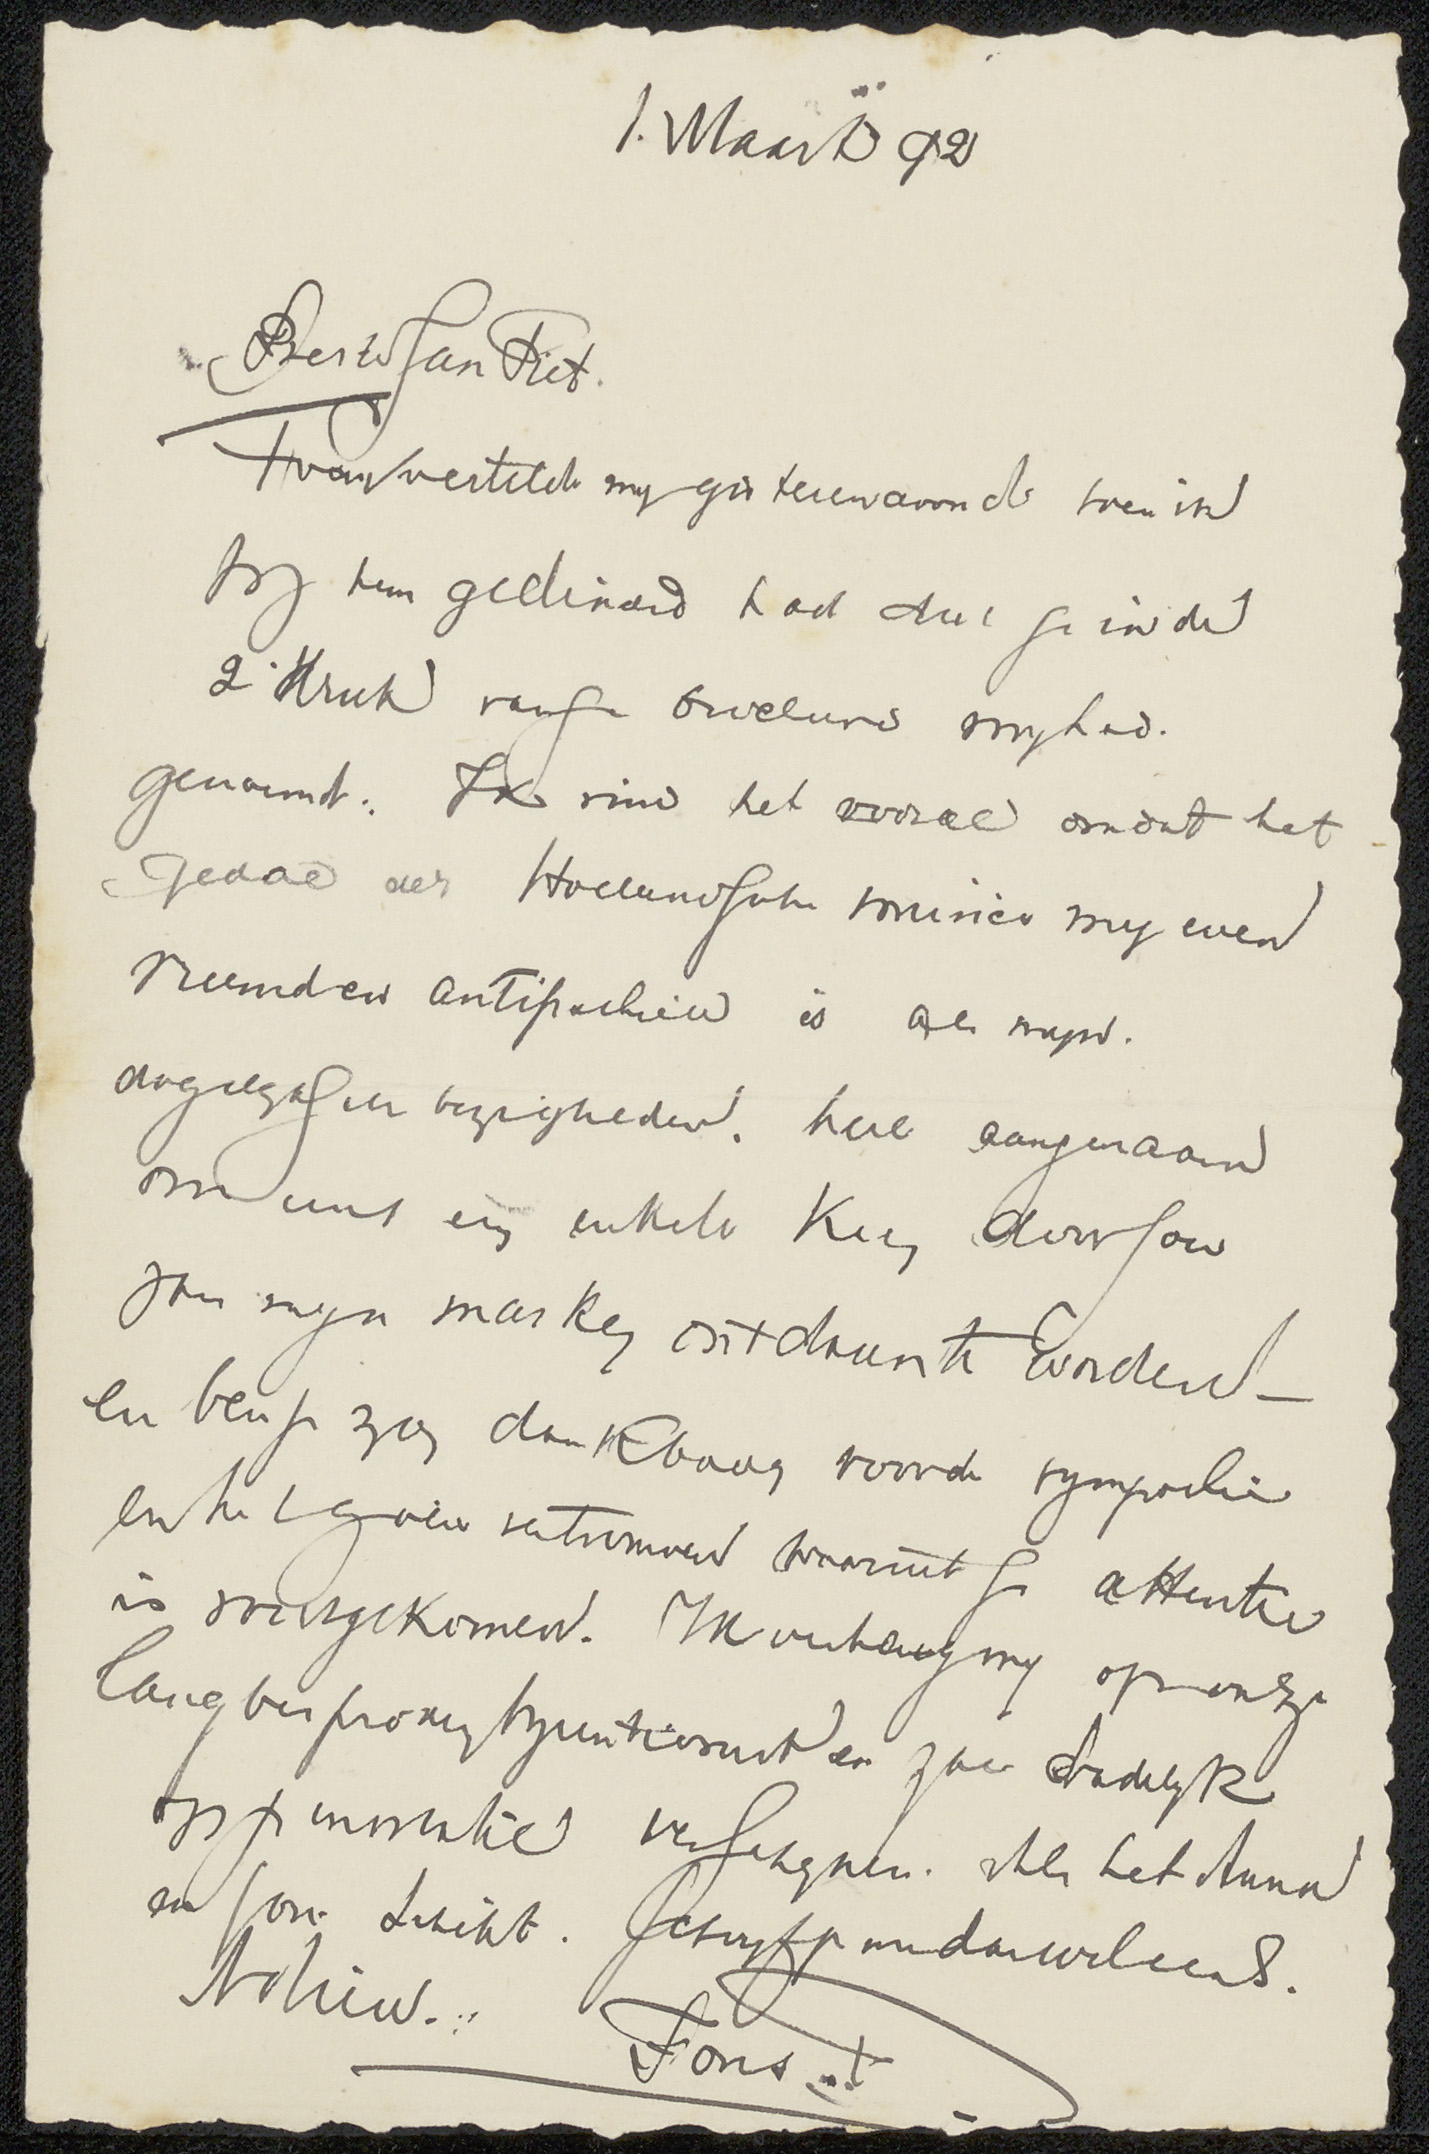 1. Maart 92
Beste Jan Piet.
vertelde my gisterenavond toen ik
by hem gedineerd had dat je in de
2e druk van je my had
genoemd. Ik vind het vooral omdat het
gedoe der Hollandsche my even
vreemd en antipathiek is als myn
dagelyksche bezigheden, heel aangenaam
om eens een enkele keer door jou
van myn ontdaan te worden —
en ben je zeer dankbaar voor de sympathie
en het vertrouwen waaruit je attentie
is voortgekomen. Ik verheug my op onze
lang besproken byeenkomst en zal dadelyk
op je invitatie verschynen. Als het Anna
en jou schikt. Schryf me dan wel eens.
Adieu. Fons